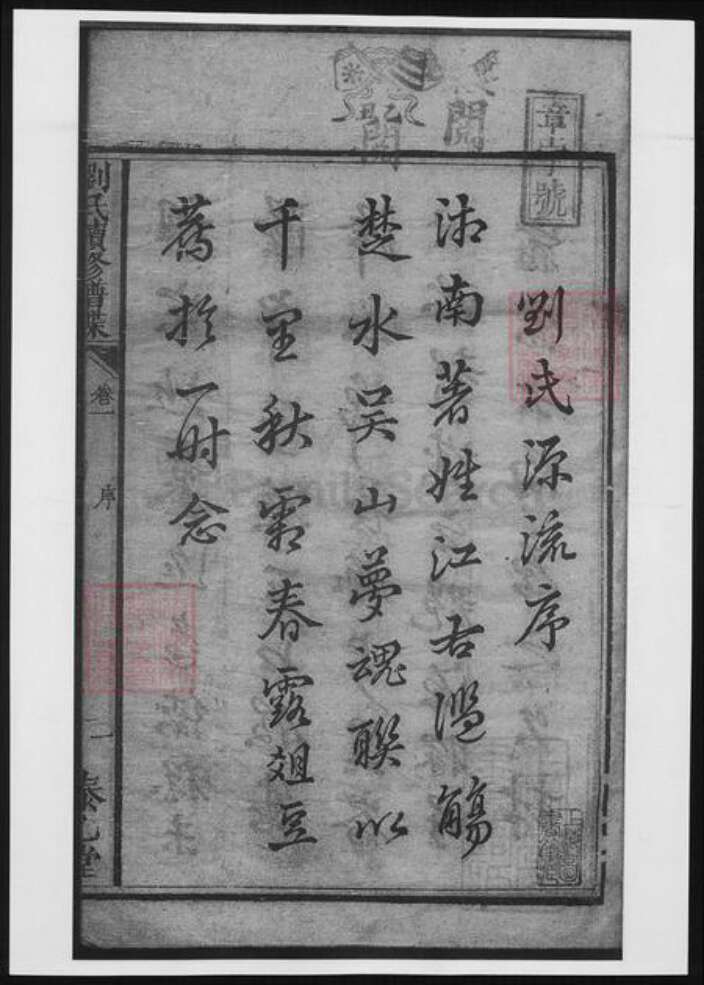 章字號
劉氏源流序
沛南著姓江右濫觴
楚水吳山夢魂聯以
千里秋霜春露俎豆
薦於一时念
劉氏續修譜牒
卷一
序
一